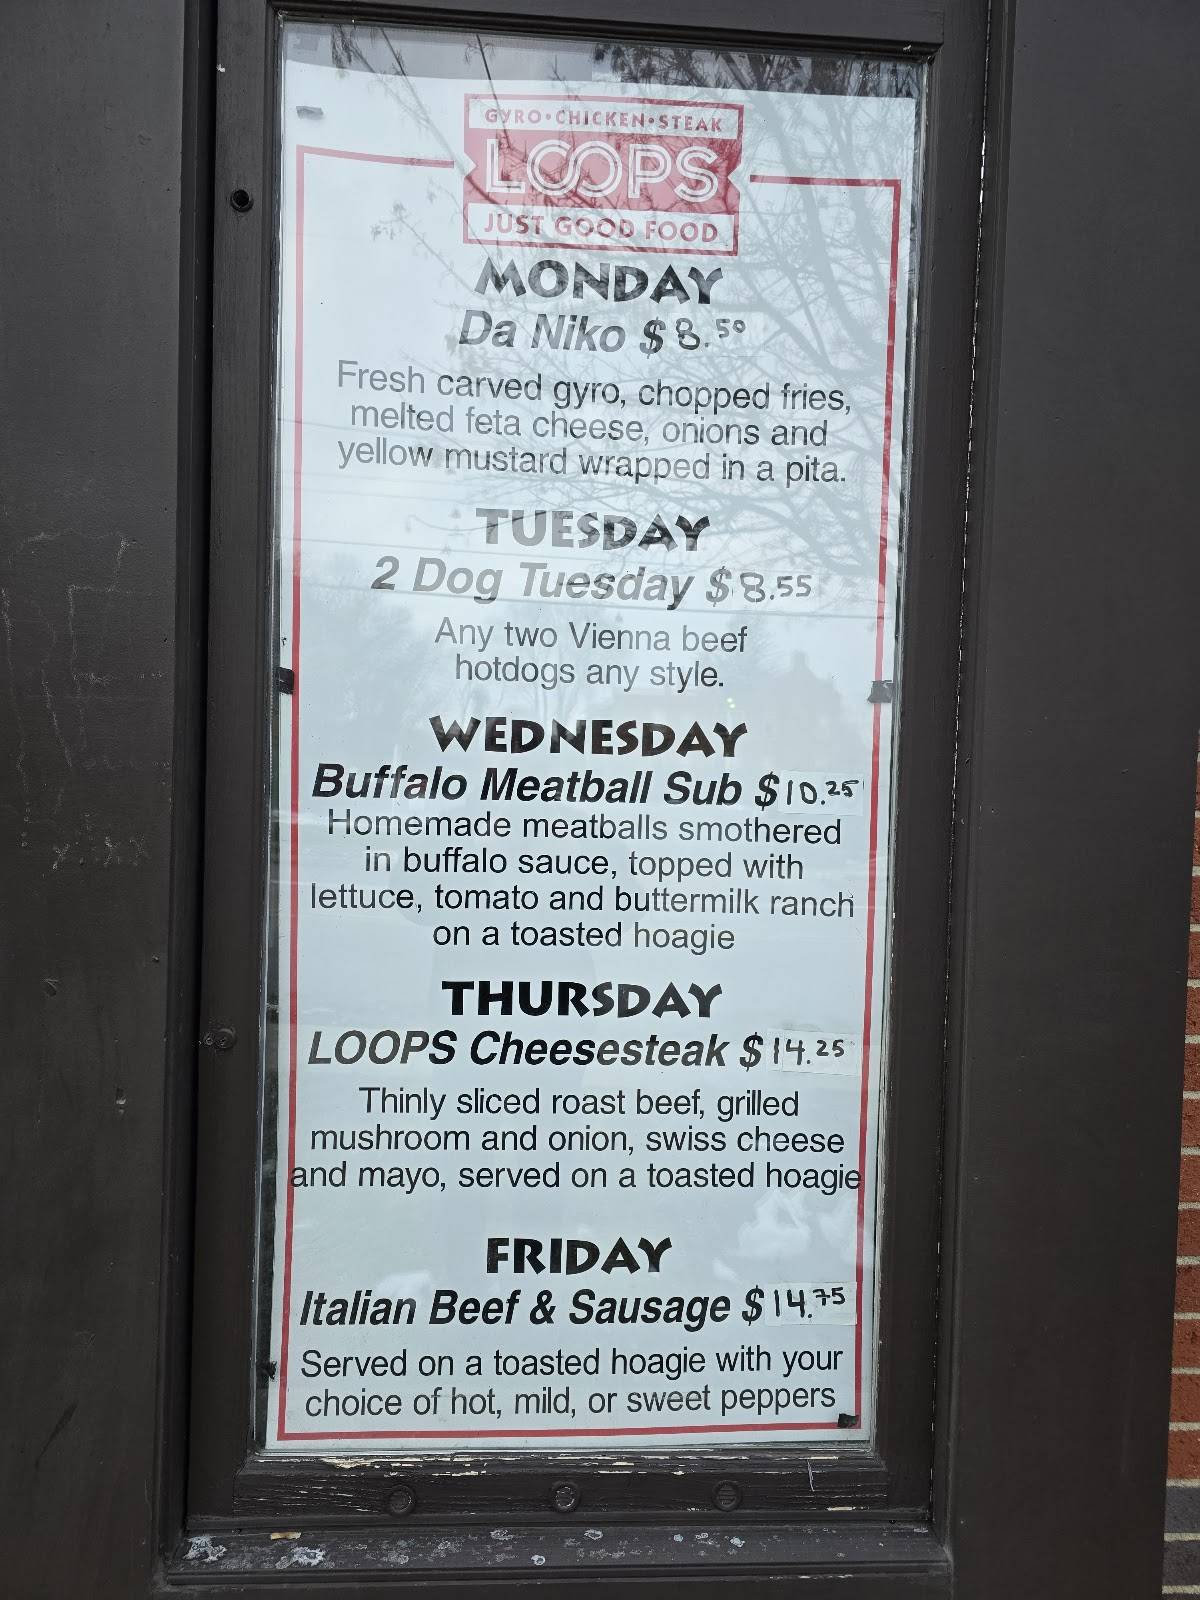 GYRO•CHICKEN•STEAK
LOOPS
JUST GOOD FOOD
MONDAY
Da Niko $8.50
Fresh carved gyro, chopped fries,
melted feta cheese, onions and
yellow mustard wrapped in a pita.
TUESDAY
2 Dog Tuesday $8.55
Any two Vienna beef
hotdogs any style.
WEDNESDAY
Buffalo Meatball Sub $10.25
Homemade meatballs smothered
in buffalo sauce, topped with
lettuce, tomato and buttermilk ranch
on a toasted hoagie
THURSDAY
LOOPS Cheesesteak $14.25
Thinly sliced roast beef, grilled
mushroom and onion, swiss cheese
and mayo, served on a toasted hoagie
FRIDAY
Italian Beef & Sausage $14.75
Served on a toasted hoagie with your
choice of hot, mild, or sweet peppers